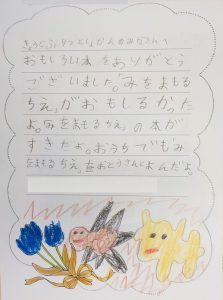 きょうりつとしょかんのみなさんへ
おもしろい本をありがとう
ございました。「みをまもる
ちえ」がおもしろかった
よ。「みをまもるちえ」の本が
すきだよ。おうちでもみ
をまもるちえ。をおとうさんとよんだよ。